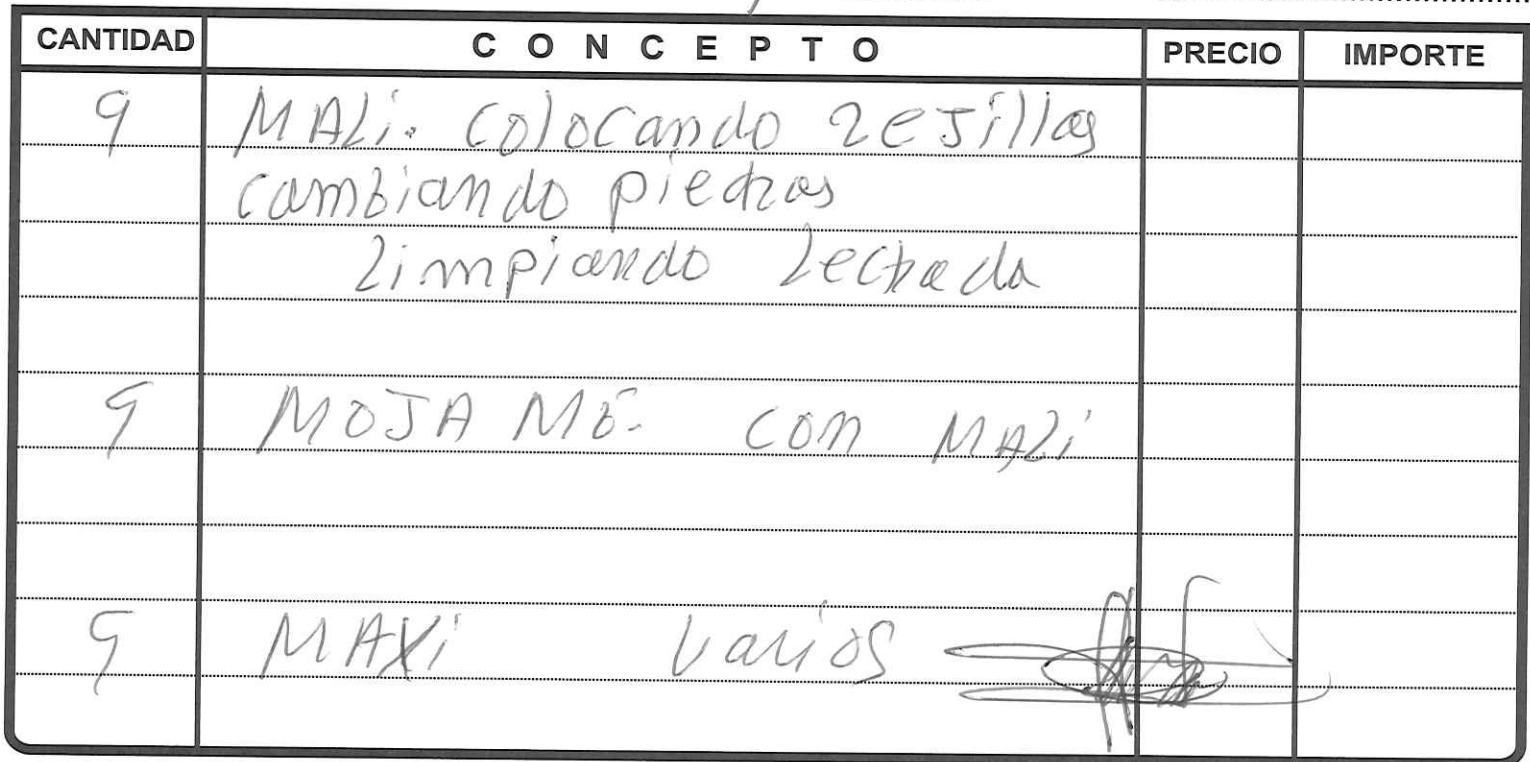 CANTIDAD CONCEPTO PRECIO IMPORTE
9 MALi. colocando rejillas
cambiando piedras
limpiando lechada
9 MOJAME. con MALi
9 MAXi varios